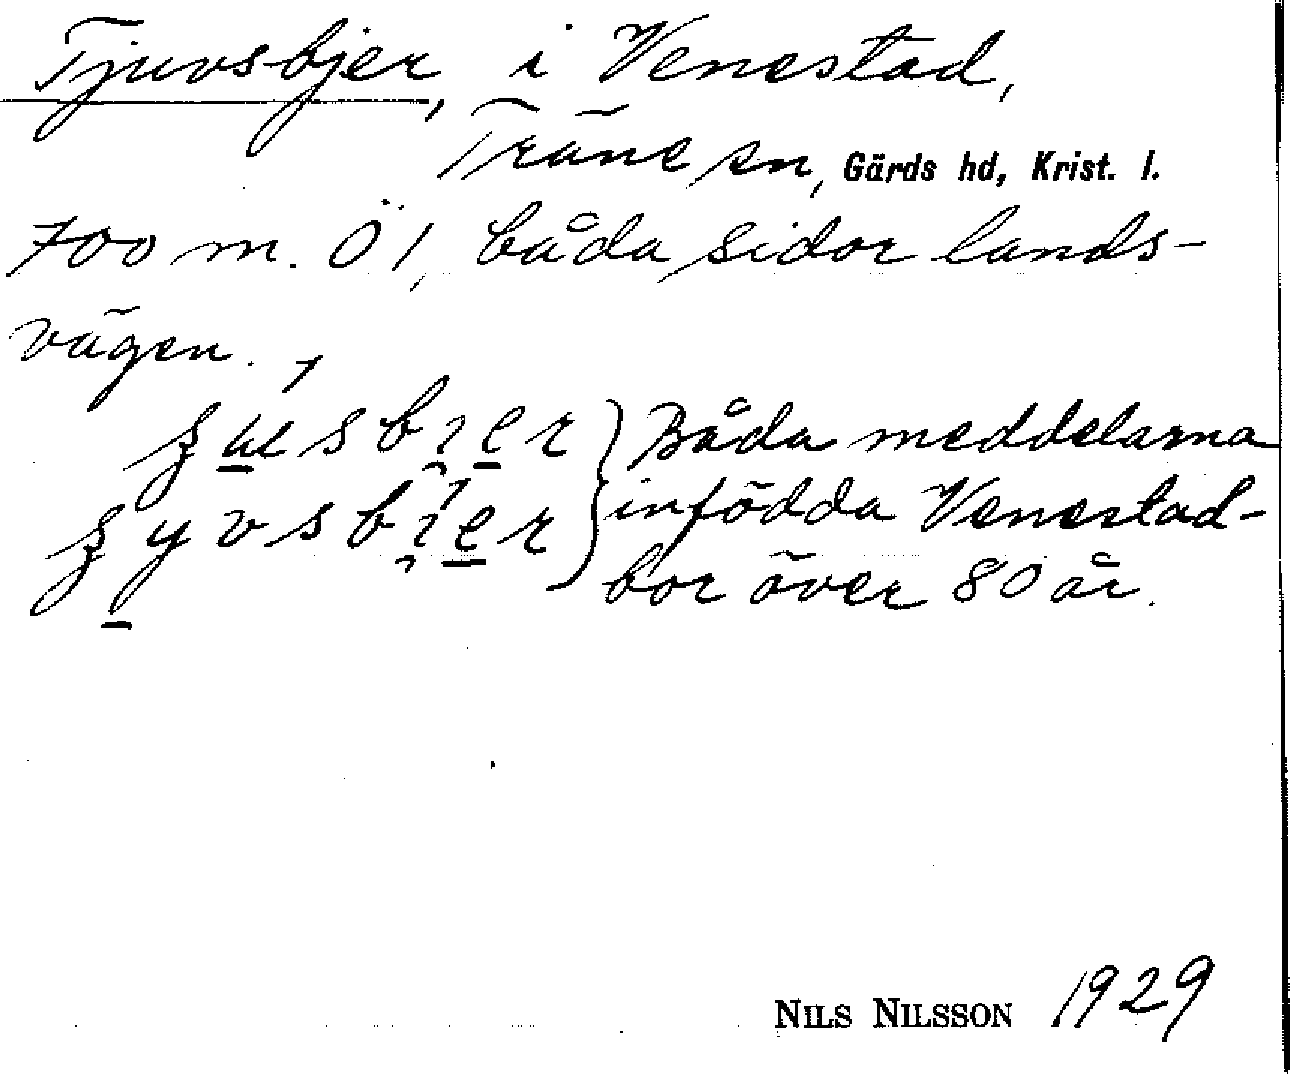 Tjuvsbjer, i Venestad,
Träne sn, Gärds hd, Krist. l.
700 m. Ö 1, båda sidor lands-
vägen.
Båda meddelarna
infödda Venestad-
bor över 80 år.
NILS NILSSON 1929